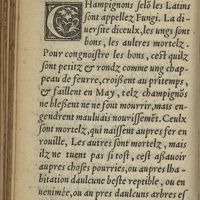 CHampignons selõ les Latins
sont appellez Fungi. La di-
uersite diceulx, les ungs sont
bons, les aultres mortelz.
Pour congnoistre les bons, cest quilz
sont petitz & rondz comme ung chap-
peau de feurre, croissent au pritemps,
& faillent en May, telz champignõs
ne blessent ne ne sont mourrir, mais en-
gendrent mauluais nourrissemẽt. Ceulx
sont mortelz, qui naissent aupres fer en
rouille, Les autres sont mortelz, mais
ilz ne tuent pas si tost, cest assauoir
aupres choses pourries, ou aupres lha-
bitation daulcune beste reptible, ou en
uenimée, ou au pres daulcuns arbres es